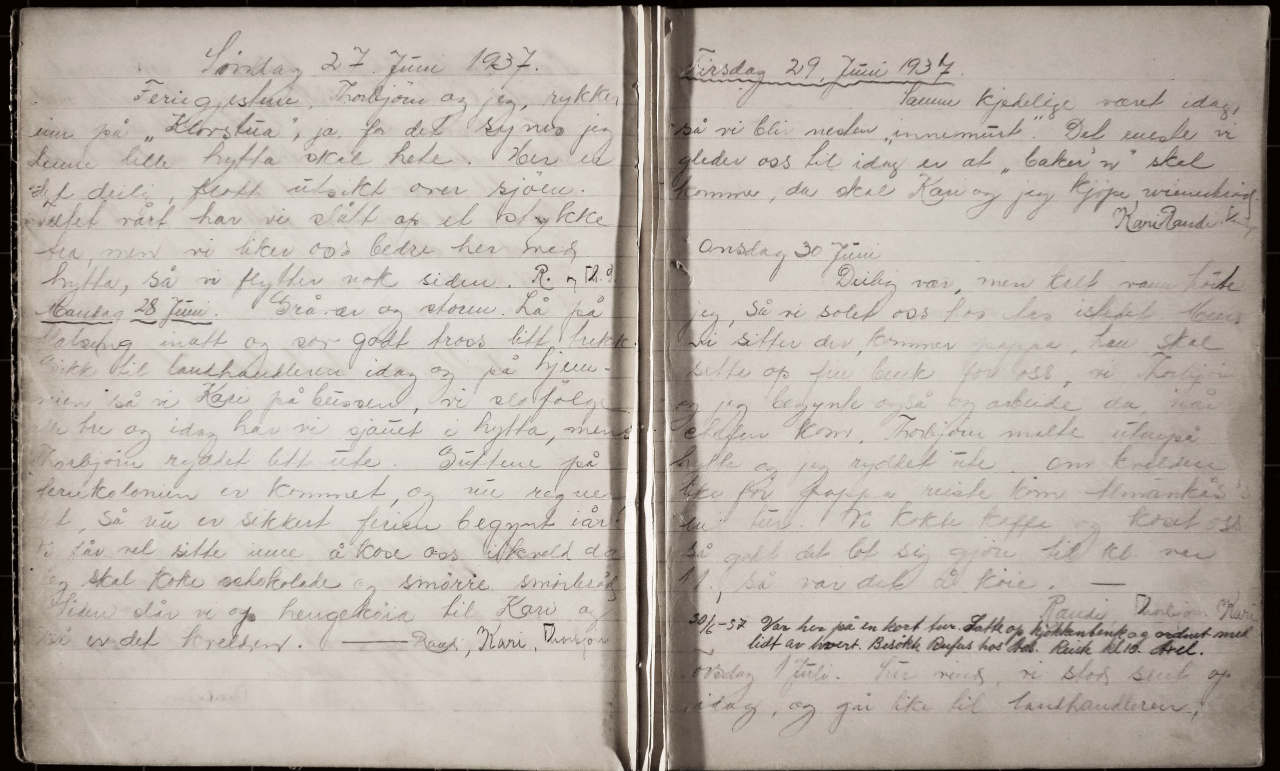 Søndag 27. Juni 1937.
Feriegjestene, Thorbjørn og jeg, rykker
inn på „Klorstua", ja, for det synes jeg
denne lille hytta skal hete. Her er
det deilig, flott utsikt over sjøen.
Teltet vårt har vi slått op et stykke
fra, men vi liker oss bedre her ved
hytta, så vi flytter nok siden. R. og Th.
Mandag 28 Juni. Gråvær og storm. Lå på
inatt og sov godt tross litt trekk.
Gikk til landhandleren idag og på hjem-
veien så vi Kari på bussen, vi slo følge
alle tre og idag har vi sjauet i hytta, mens
Thorbjørn ryddet litt ute. Guttene på
feriekolonien er kommet, og nu regner
det, så nu er sikkert ferien begynt iår!
Vi får vel sitte inne å kose oss ikveld da
jeg skal koke schokolade og smørre smørbrød
Siden slår vi op hengekøia til Kari og
så er det kvelden. — Randi, Kari, Thorbjørn
Tirsdag 29. Juni 1937.
Samme kjedelige været idag,
så vi blir nesten „innemurt". Det eneste vi
gleder oss til idag er at „baker'n" skal
komme, da skal Kari og jeg kjøpe wienerbrød.
Kari Randi
Onsdag 30 Juni
Deilig vær, men kalt vann
jeg, så vi solet oss istedet. Mens
vi sitter der, kommer pappa, han skal
sette op fin benk for oss, vi Thorbjørn
og jeg begynte også og arbeide da, når
sjefen kom. Thorbjørn malte utenpå
hytta og jeg ryddet ute. Om kvelden
like før pappa reiste kom
en tur. Vi kokte kaffe og koset oss
så godt det lot sig gjøre til kl var
11, så var det å køie. —
Randi, Thorbjørn, Kari
30/6-37 Var her på en kort tur. Satte op kjøkkenbenk og ordnet med
lidt av hvert. Besøkte Rufus hos Reiste kl 10.
Torsdag 1 Juli. Sur vind, vi stod sent op
idag, og går like til landhandleren,